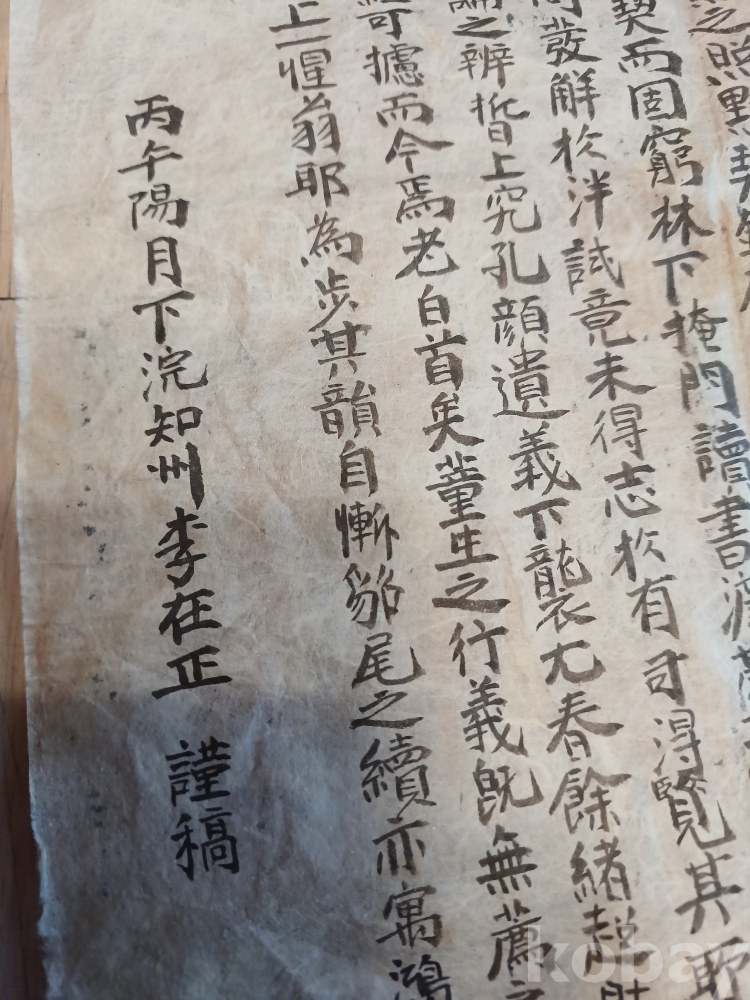 之照點契
契而固窮林下掩門讀書
發解於泮試竟未得志於有司得覽其
之辨皆上究孔顔遺義下襲尤春餘緒超
可據而今焉老白首矣董生之行義旣無薦
上一惺翁耶為步其韻自慚貂尾之續亦寓鴻
丙午陽月下浣知州李在正 謹稿
kobay